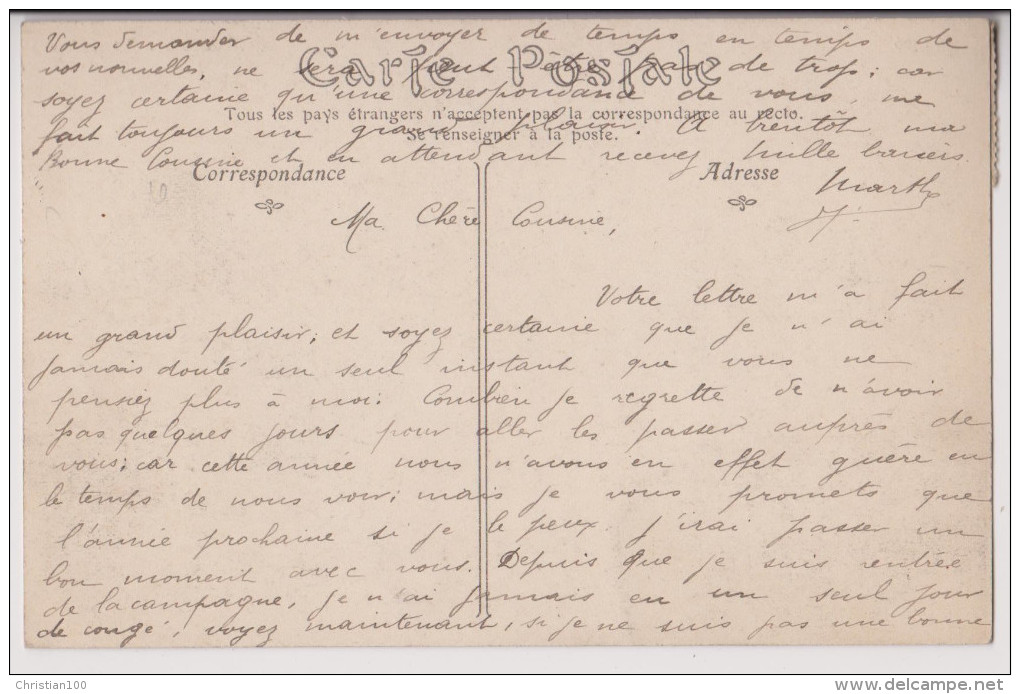 Vous demander de m'envoyer de temps en temps de
Carte Postale
vos nouvelles, ne sera peut être pas de trop; car
soyez certaine qu'une correspondance de vous, me
Tous les pays étrangers n'acceptent pas la correspondance au recto.
fait toujours un grand plaisir. A bientôt ma
Se renseigner à la poste.
Bonne Cousine et en attendant recevez mille baisers.
Correspondance
Adresse
Marthe
Ma Chère Cousine,
Votre lettre m'a fait
un grand plaisir; et soyez certaine que je n'ai
jamais douté un seul instant que vous ne
pensiez plus à moi. Combien je regrette de n'avoir
pas quelques jours pour aller les passer auprès de
vous; car cette année nous n'avons en effet guère eu
le temps de nous voir; mais je vous promets que
l'année prochaine si je le peux j'irai passer un
bon moment avec vous. Depuis que je suis rentrée
de la campagne, je n'ai jamais eu un seul jour
de congé, voyez maintenant, si je ne suis pas une bonne
Christian100
www.delcampe.net